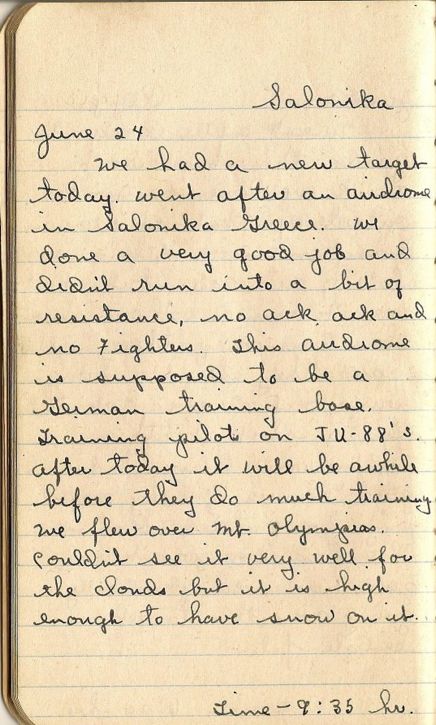 Salonika
June 24
We had a new target
today. Went after an airdrome
in Salonika Greece. We
done a very good job and
didn't run into a bit of
resistance, no ack ack and
no Fighters. This airdrome
is supposed to be a
German training base.
Training pilots on JU-88's.
After today it will be awhile
before they do much training
We flew over Mt. Olympias.
Couldn't see it very well for
the clouds but it is high
enough to have snow on it.
Time - 9:35 hr.